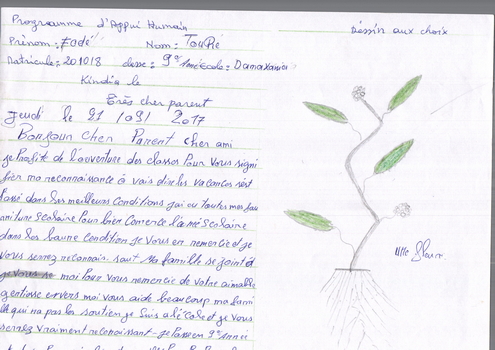 Programme d'Appui Humain
Dessin aux choix
Prénom: Fodé Nom: Touré
Matricule: 201018 classe: 9e année école: Damakania
Kindia le
Très cher parent
Jeudi le 21 /09/ 2017
Bonjour cher Parent cher ami
je Profite de l'ouverture des classes Pour vous signi
fier ma reconnaissance à vais dire les vacances s'est
Passé dans les meilleurs conditions j'ai eu toutes mes fou
niture Scolaire Pour bien Comencé l'anné Scolaire
dans les bonne condition je vous en remercie et je
vous serrez reconnais. sant Ma famille se joint à
moi Pour vous remercie de votre aimable
gentiesse envers moi vous aide beaucoup ma fami
lle qui na pas les soutien je suis a l'école et je vous
serrez vraiment reconnaissant - je Passe en 9e année
une fleur